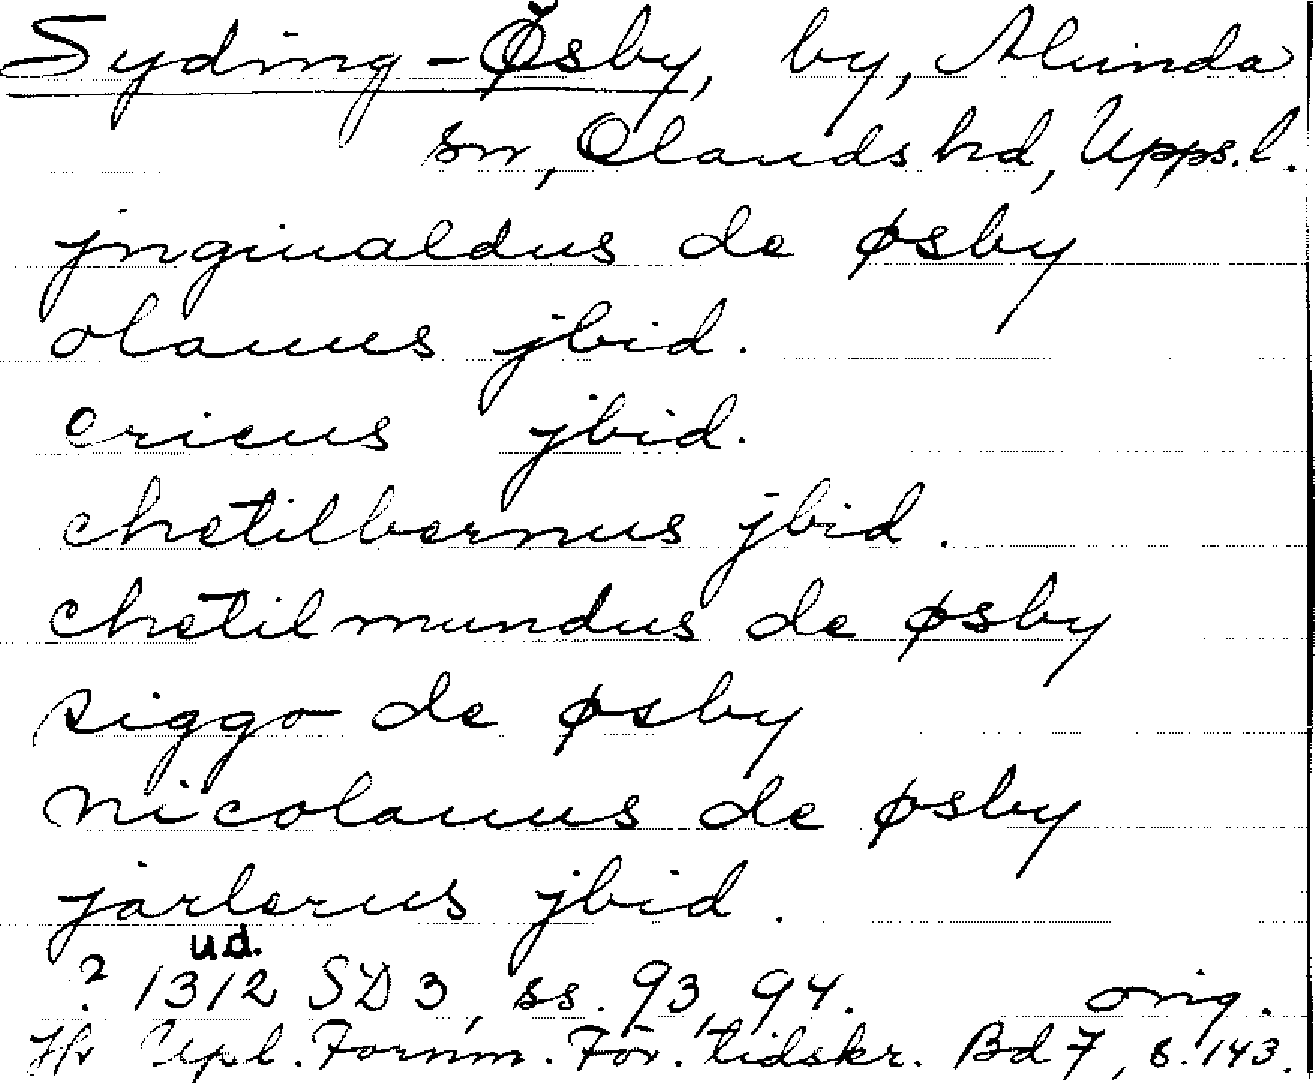 Syding-Ösby, by, Alunda
sn, Olands hd, Upps. l.
jnginaldus de øsby
olauus jbid.
ericus jbid.
chetilbernus jbid.
chetilmundus de øsby
siggo de øsby
nicolauus de øsby
jarlerus jbid.
u.d.
? 1312 SD 3, ss. 93, 94. orig.
Hr Upl. Fornm. För. tidskr. Bd 7, s. 143.